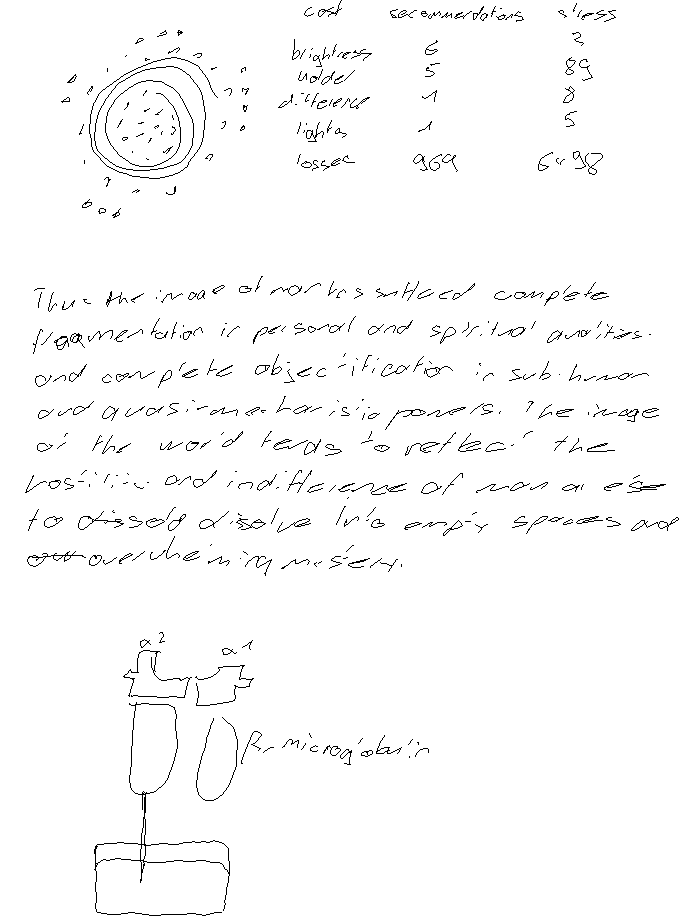 cost recommendations stress
brightness 6 2
5 89
difference 1 8
lights 1 5
losses 969 6498
Thus the image of man has suffered complete
fragmentation in personal and spiritual qualities.
and complete objectification in sub-human
and quasi-mechanistic powers. The image
of the world tends to reflect the
hostility and indifference of man or else
to dissold disolve into empty spaces and
overwhelming mistery.
α2 α1
β2-microglobulin